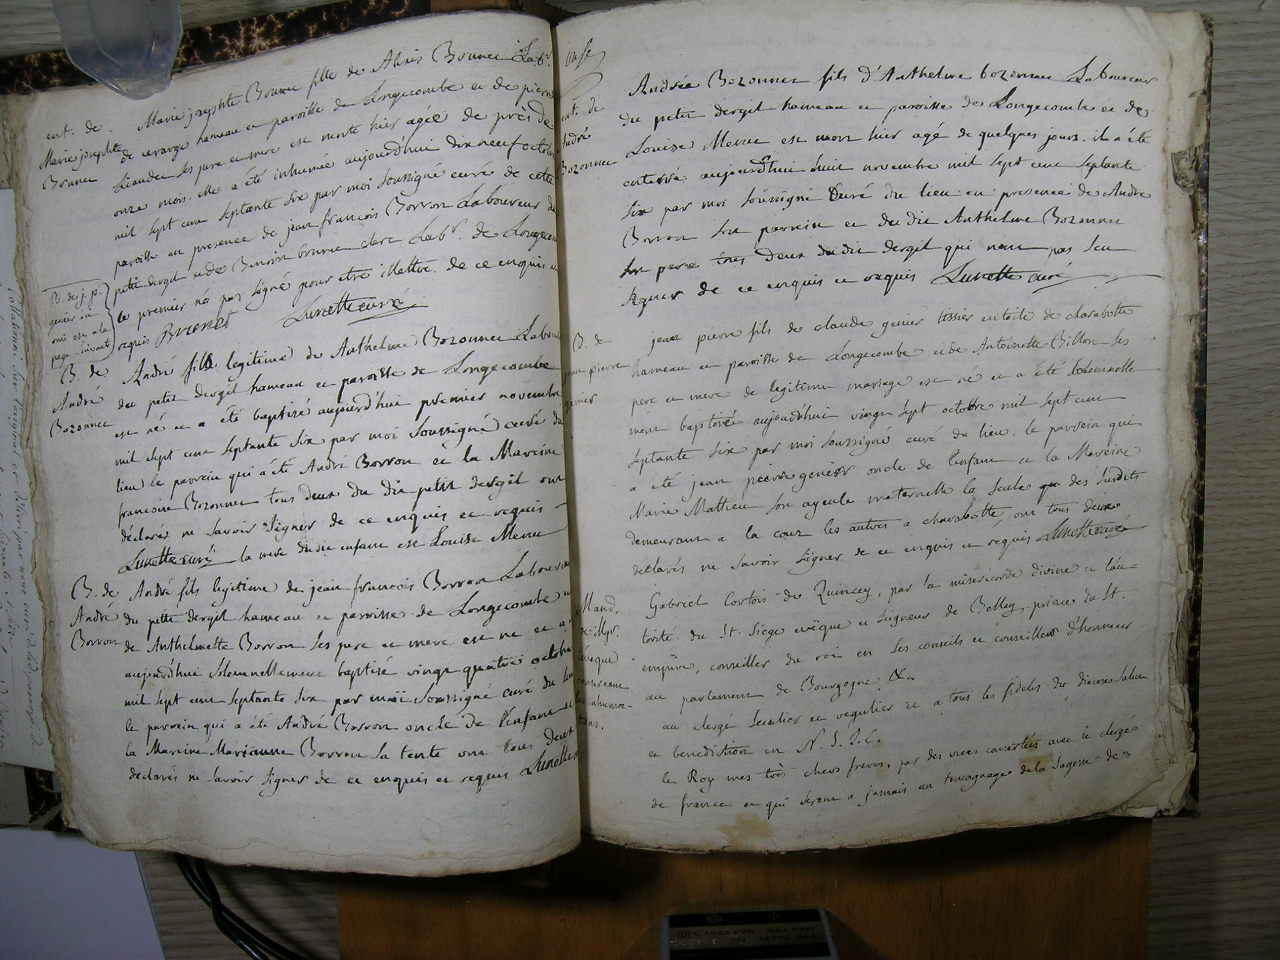 ent. de
Marie josephte
Brunet
Marie josephte Brunet fille de Alexis Brunet Lab.r
de cerarge hameau et paroisse de Longecombe et de pierrette
ses pere et mere est morte hier agée de près de
onze mois. elle a été inhumée aujourd'hui dix neuf octobre
mil sept cent septante six par moi soussigné curé de cette
paroisse en presence de jean francois Borron Laboureur du
petit dergil et de Benoist brunet clerc Lab.r de Longecombe
le premier n'a pas signé pour etre illettré de ce enquis et
requis Brunet Lunette curé
B. de j. p.
genier ici
omis est a la
page suivante
B. de
André
Bozonnet
André fils legitime de Anthelme Bozonnet Laboureur
du petit dergil hameau et paroisse de Longecombe
est né et a été baptizé aujourd'hui premier novembre
mil sept cent septante six par moi soussigné curé du
lieu le parrein qui a été André Borron et la Mareine
francoise Bozonnet tous deux du dit petit dergil ont
déclarés ne savoir signer de ce enquis et requis
Lunette curé la mere du dit enfant est Louise Menu
B. de
André
Borron
André fils legitime de jean francois Borron Laboureur
du petit dergil hameau et paroisse de Longecombe et
de Anthelmette Borron ses pere et mere est né et a
aujourd'hui solemnellement baptizé vingt quatre octobre
mil sept cent septante six par moi soussigné curé du lieu
le parrein qui a été André Borron oncle de l'enfant et
la Mareine Marianne Borron sa tente ont tous deux
déclarés ne savoir signer de ce enquis et requis Lunette
onse
ent. de
André
Bozonnet
Andréa Bozonnet fils d'Anthelme bozonnet Laboureur
du petit dergil hameau et paroisse de Longecombe et de
Louise Menu est mort hier agé de quelques jours. il a été
enterré aujourd'hui huit novembre mil sept cent septante
six par moi soussigné Curé du lieu en presence de André
Borron son parrein et du dit Anthelme Bozonnet
son pere tous deux du dit dergil qui n'ont pas scu
signer de ce enquis et requis Lunette curé
B. de
jean pierre
genier
jean pierre fils de claude genier tissier en toile de charabotte
hameau et paroisse de Longecombe et de Antoinette Billon ses
pere et mere de legitime mariage est né et a été solemnelle
ment baptizé aujourd'hui vingt sept octobre mil sept cent
septante six par moi soussigné curé du lieu. le parrein qui
a été jean pierre genier oncle de l'enfant et la Mareine
Marie Mathieu son ayeule maternelle la seule que des susdits
demeurant a la coux les autres a charabotte ont tous deux
déclarés ne savoir signer de ce enquis et requis Lunette curé
Mand.
de Mgr.
l'eveque
concernant
les inhuma-
tions.
Gabriel Cortois de Quincey, par la miséricorde divine et l'au-
torité du St. Siege evêque et Seigneur de Belley, prince du St.
empire, conseiller du roi en ses conseils et conseiller d'honneur
au parlement de Bourgogne &a
au clergé seculier et regulier et a tous les fideles du diocese Salut
et benediction en N. S. J. C.
le Roy mes très chers freres, par des vues concertées avec le clergé
de france et qui seront a jamais un temoignage de la sagesse de